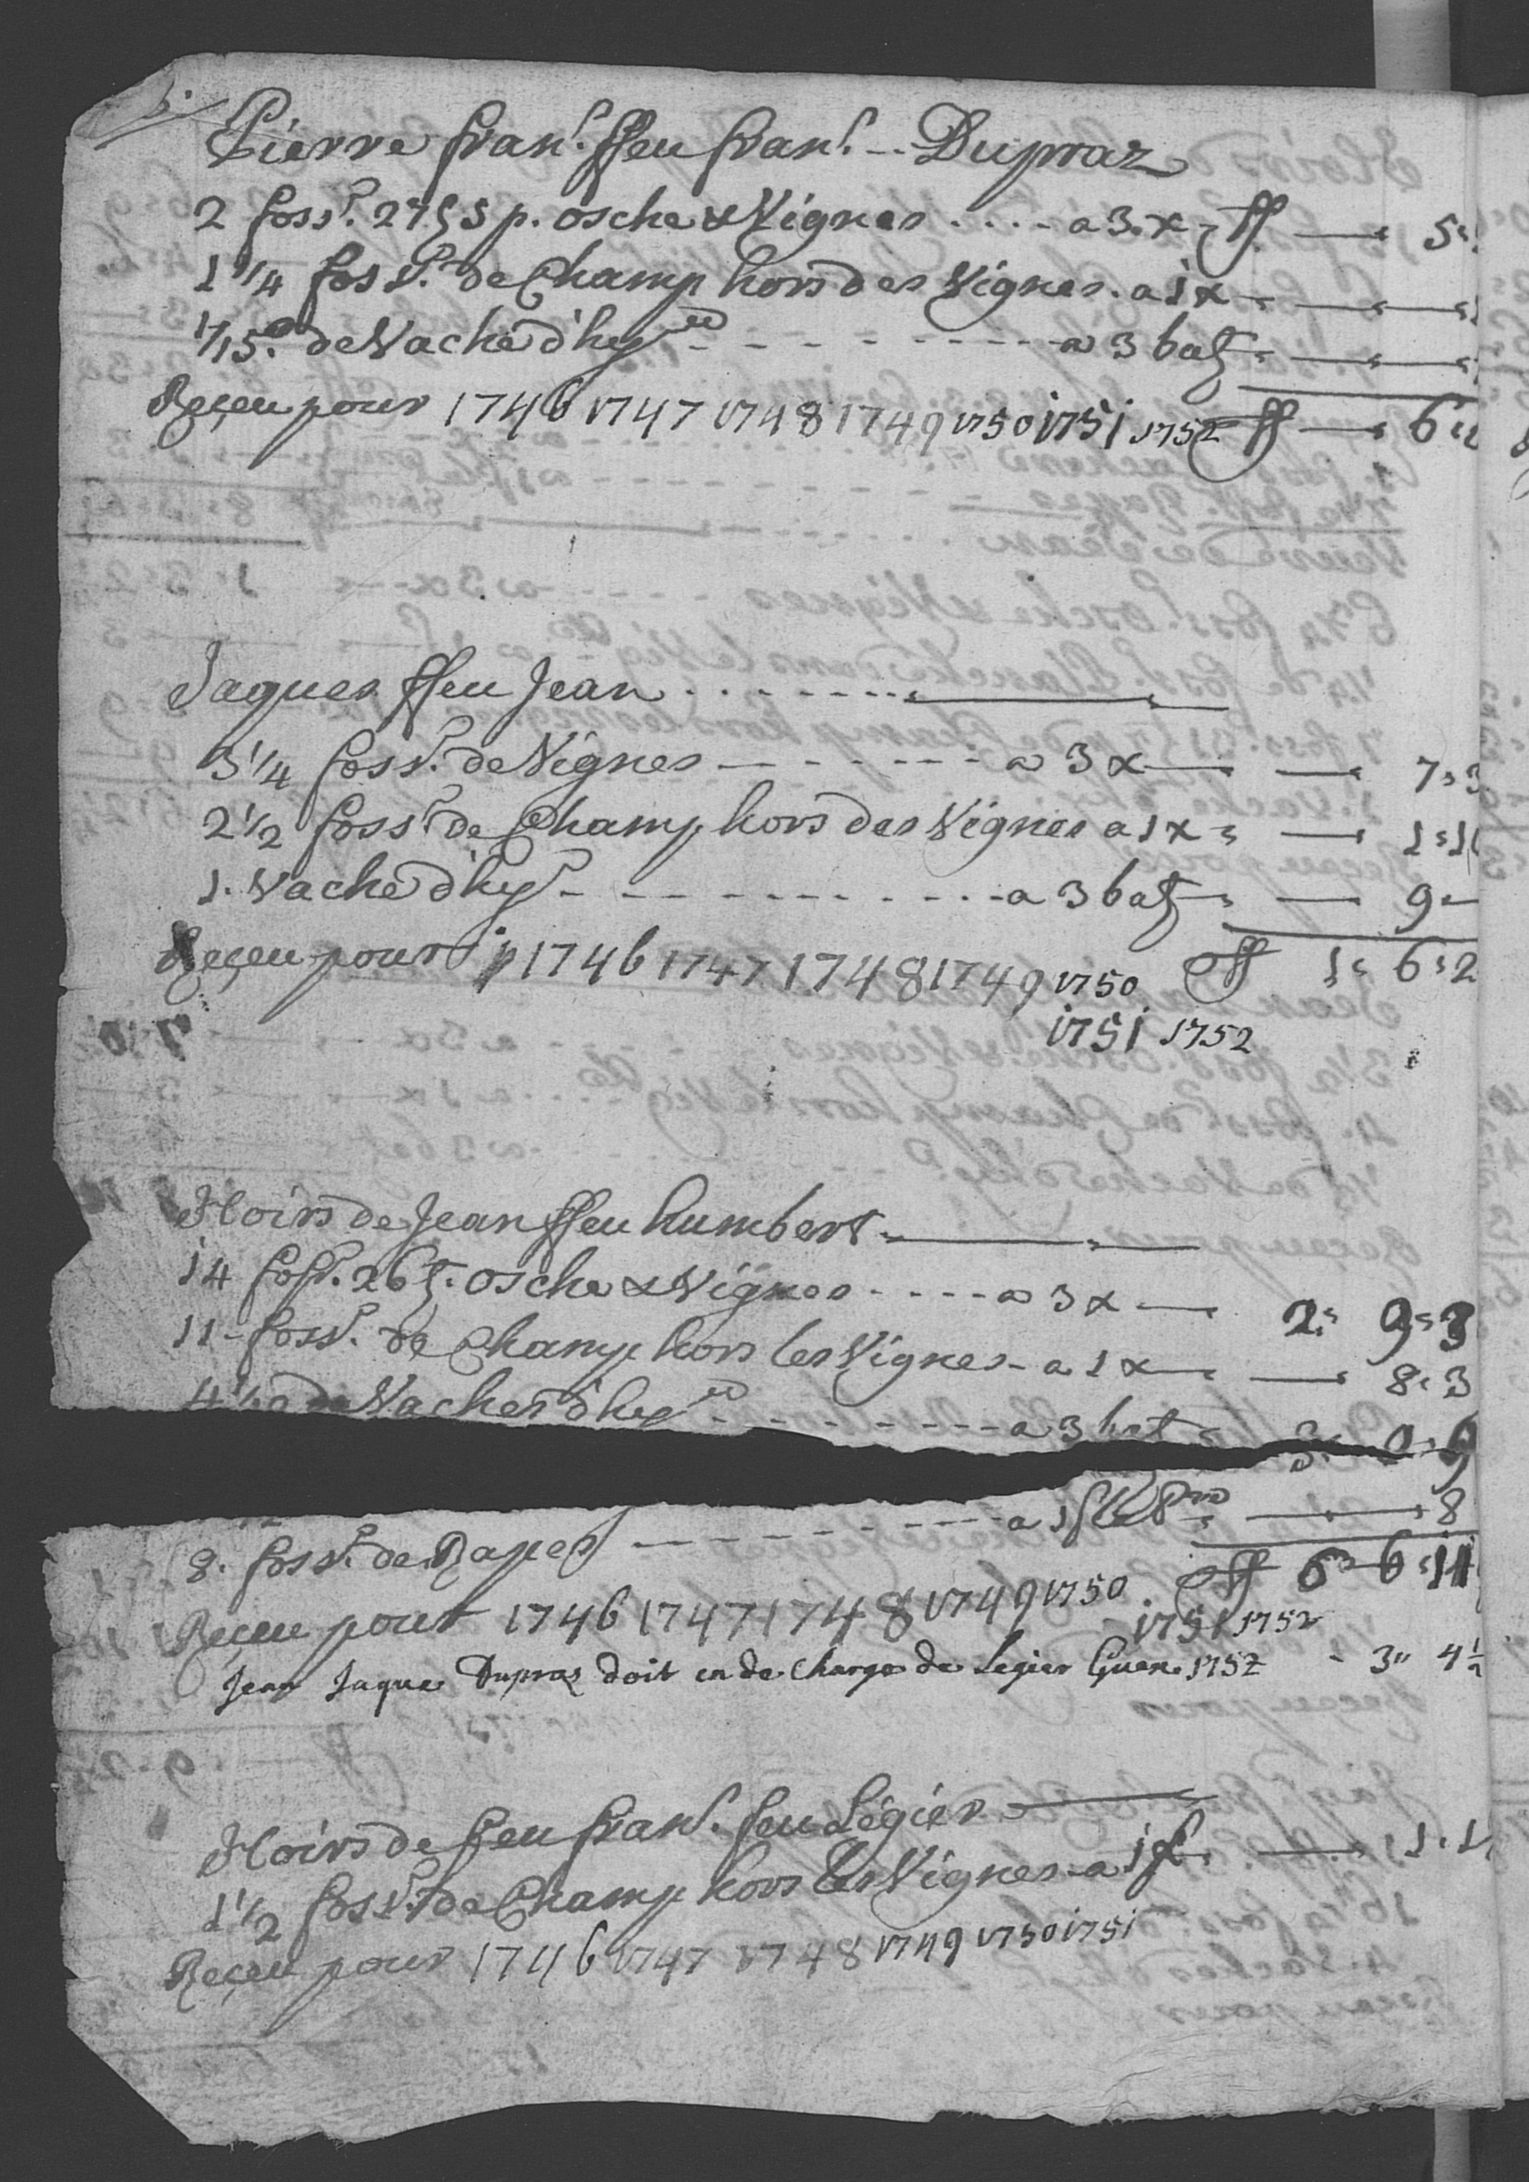 Pierre fran.s ffeu fran.s -- Dupraz
2 foss.r 27 5 p. osche & Vignes .... a 3. x ff — 5
1 1/4 foss.r de Champ hors des Vignes. a 1 x —
1/15.e de Vache d'hyv -------- a 3 batz —
Reçeu pour 1746 1747 1748 1749 1750 1751 1752 ff — 6
Jaques ffeu Jean ........
3 1/4 foss.r de Vignes ------- a 3 x — — 7 3
2 1/2 foss.r de Champ hors des Vignes a 1 x — 1
1. Vache d'hyv --------- a 3 batz — 9 —
Reçeu pour 1746 1747 1748 1749 1750 ff 1 6 2
1751 1752
Hoirs de Jean ffeu humbert
14 foss.r 26 osche & Vignes .... a 3 x — 2 9 3
11 - foss.r de Champ hors les Vignes - a 1 x — 8 3
4 1/2 de Vaches d'hyv ------- a 3 batz 3
8. foss.r de Rapes --------- a 1 — 8
Reçeu pour 1746 1747 1748 1749 1750 ff 6 6 11
1751 1752
Jean Jaque Dupraz doit en de Charge de Legier Guex 1752 - 3" 4 1/2
Hoirs de ffeu fran.s feu Légier
1 1/2 foss.r de Champ hors les Vignes - a 1 — 1
Reçeu pour 1746 1747 1748 1749 1750 1751